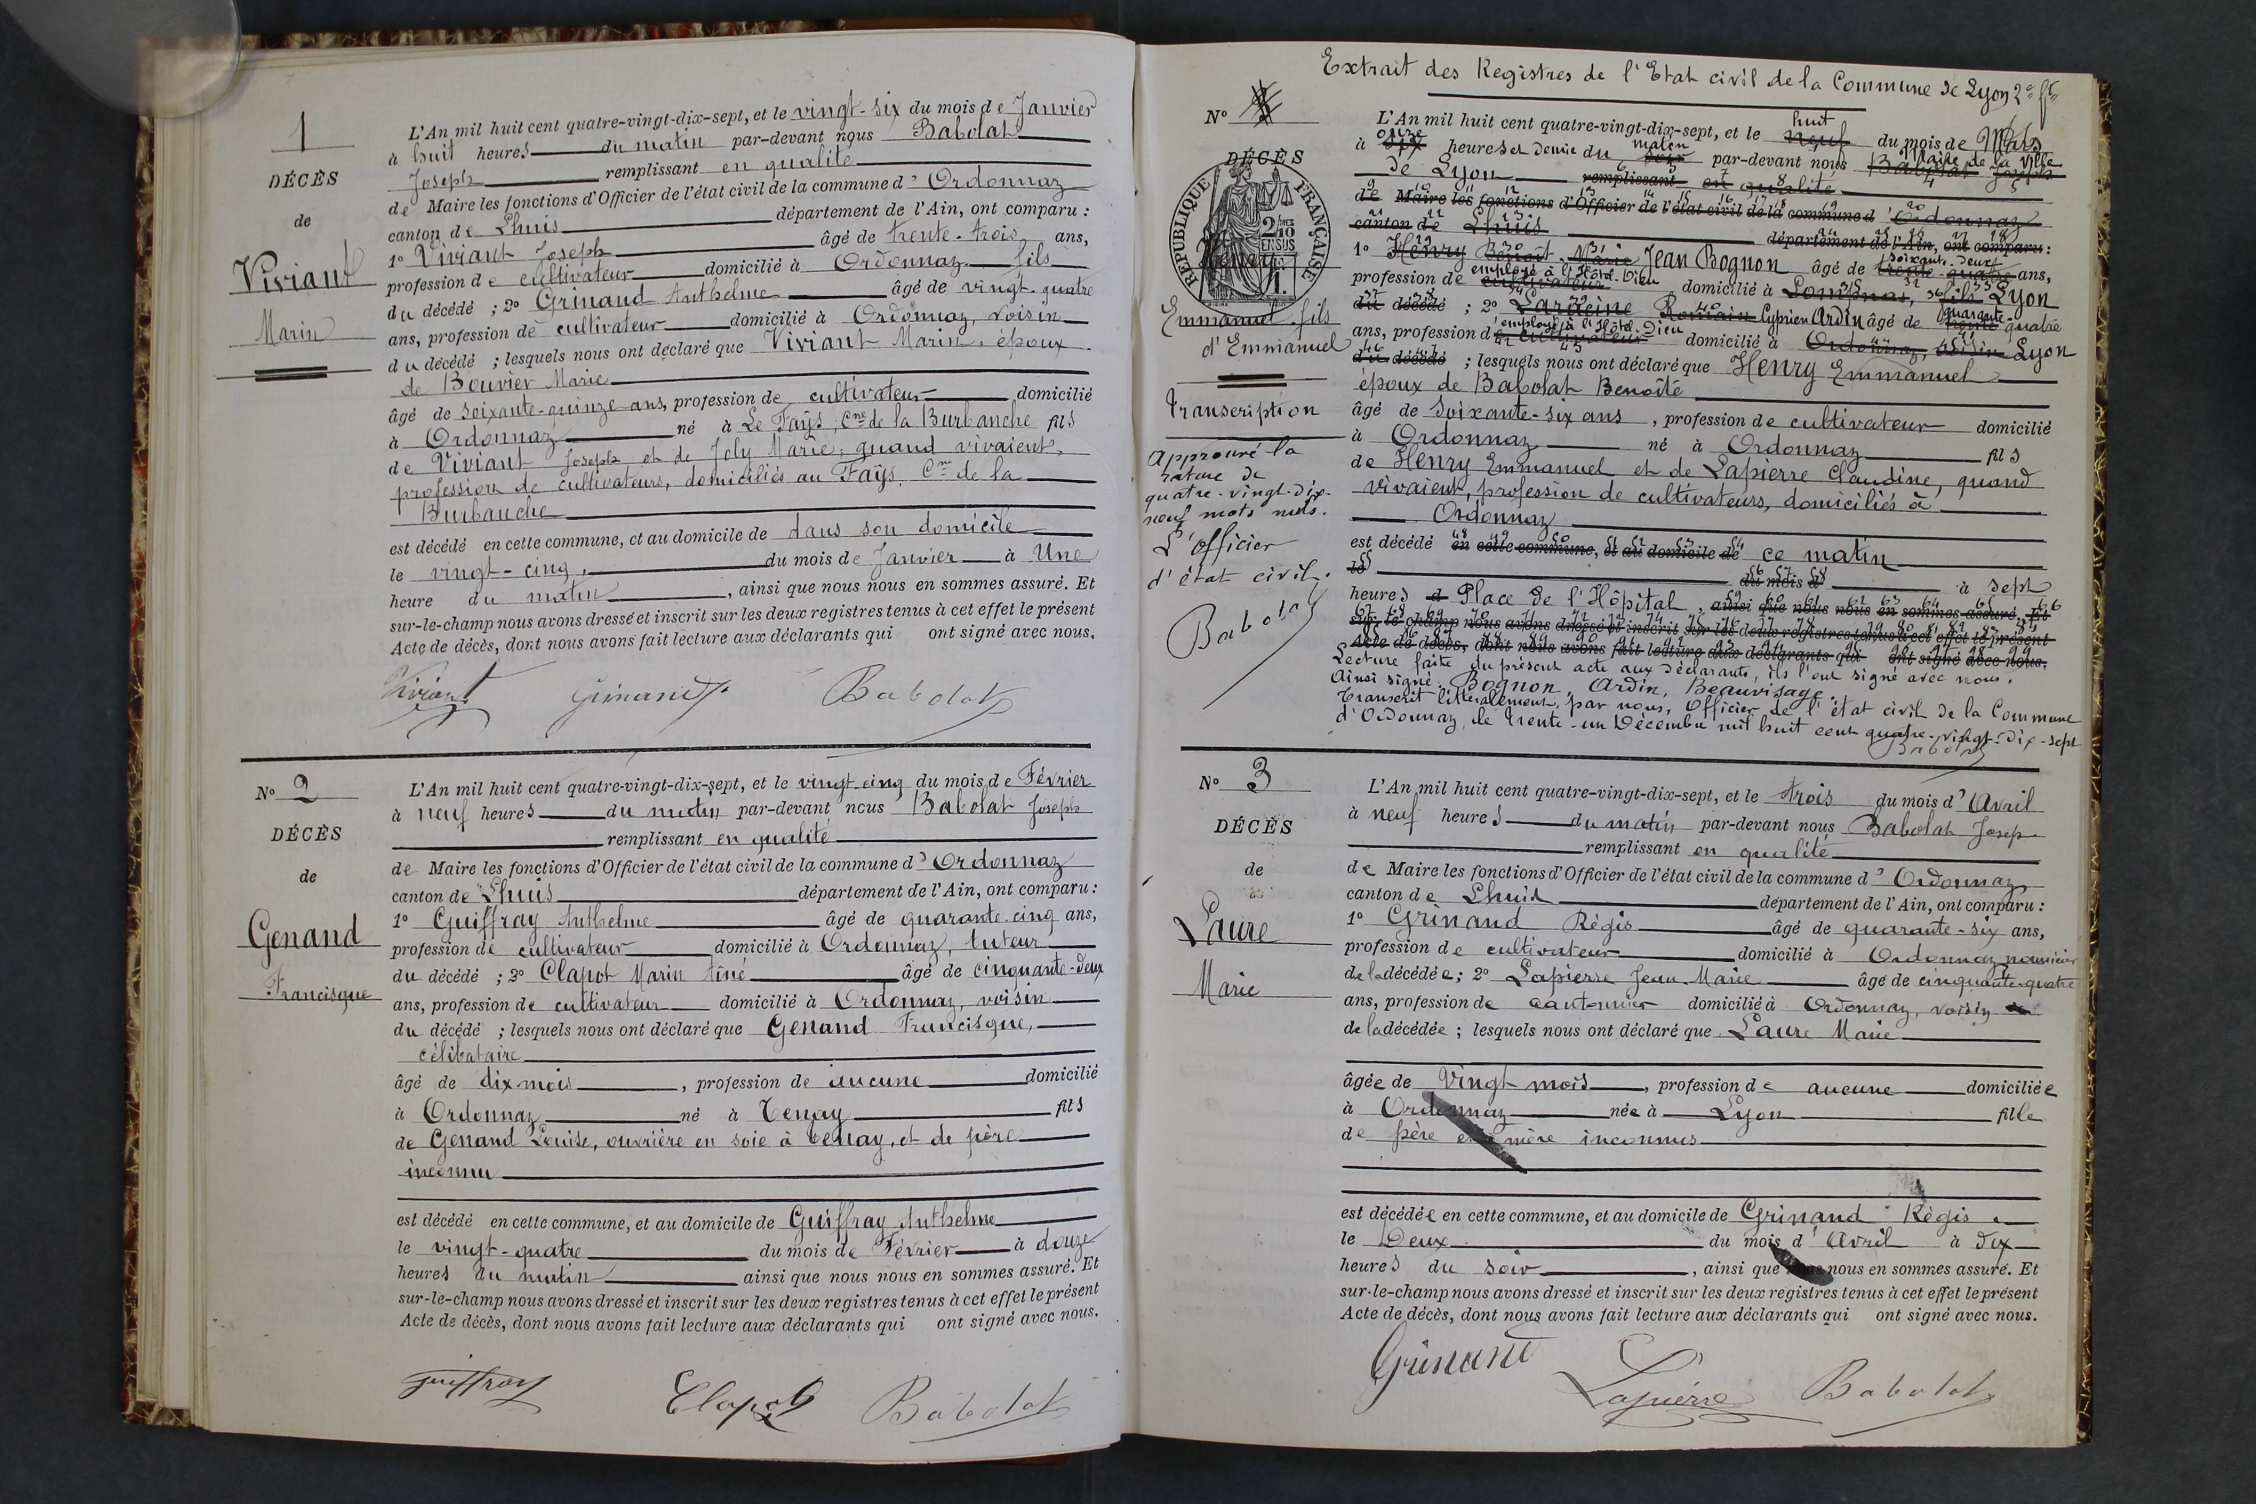 1
DÉCÈS
de
Viviant
Marin
L'An mil huit cent quatre-vingt-dix-sept, et le vingt-six du mois de Janvier
à huit heures du matin par-devant nous Babolat
Joseph remplissant en qualité
de Maire les fonctions d'Officier de l'état civil de la commune d'Ordonnaz
canton de Lhuis département de l'Ain, ont comparu :
1º Viviant Joseph âgé de trente-trois ans,
profession de cultivateur domicilié à Ordonnaz fils
du décédé ; 2º Grinand Anthelme âgé de vingt-quatre
ans, profession de cultivateur domicilié à Ordonnaz, voisin
du décédé ; lesquels nous ont déclaré que Viviant Marin, époux
de Bouvier Marie
âgé de soixante-quinze ans, profession de cultivateur domicilié
à Ordonnaz né à Le Faÿs, Cne de la Burbanche fils
de Viviant Joseph et de Joly Marie, quand vivaient,
profession de cultivateurs, domiciliés au Faÿs, Cne de la
Burbanche
est décédé en cette commune, et au domicile de dans son domicile
le vingt-cinq, du mois de Janvier à Une
heure du matin, ainsi que nous nous en sommes assuré. Et
sur-le-champ nous avons dressé et inscrit sur les deux registres tenus à cet effet le présent
Acte de décès, dont nous avons fait lecture aux déclarants qui ont signé avec nous.
Viviant Grinand Babolat
Nº 2
DÉCÈS
de
Genand
Francisque
L'An mil huit cent quatre-vingt-dix-sept, et le vingt-cinq du mois de Février
à neuf heures du matin par-devant nous Babolat Joseph
remplissant en qualité
de Maire les fonctions d'Officier de l'état civil de la commune d'Ordonnaz
canton de Lhuis département de l'Ain, ont comparu :
1º Guiffray Anthelme âgé de quarante-cinq ans,
profession de cultivateur domicilié à Ordonnaz, tuteur
du décédé ; 2º Clapot Marin aîné âgé de cinquante-deux
ans, profession de cultivateur domicilié à Ordonnaz, voisin
du décédé ; lesquels nous ont déclaré que Genand Francisque,
célibataire
âgé de dix mois, profession de aucune domicilié
à Ordonnaz né à Tenay fils
de Genand Louise, ouvrière en soie à Tenay, et de père
inconnu
est décédé en cette commune, et au domicile de Guiffray Anthelme
le vingt-quatre du mois de Février à douze
heures du matin ainsi que nous nous en sommes assuré. Et
sur-le-champ nous avons dressé et inscrit sur les deux registres tenus à cet effet le présent
Acte de décès, dont nous avons fait lecture aux déclarants qui ont signé avec nous.
Guiffray Clapot Babolat
Extrait des Registres de l'Etat civil de la Commune de Lyon 2e
Nº
DÉCÈS
RÉPUBLIQUE FRANÇAISE
2/10 EN SUS
Henry
Emmanuel fils
d'Emmanuel
Transcription
Approuvé la
rature de
quatre-vingt-dix-
neuf mots nuls.
L'officier
d'état civil.
Babolat
L'An mil huit cent quatre-vingt-dix-sept, et le neuf huit du mois de Mars
à six onze heures et demie du soir matin par-devant nous Babolat Joseph Maire de la Ville
de Lyon remplissant en qualité
de Maire les fonctions d'Officier de l'état civil de la commune d'Ordonnaz
canton de Lhuis département de l'Ain, ont comparu :
1º Henry Benoît Marie Jean Bognon âgé de trente-quatre soixante-deux ans,
profession de cultivateur employé à l'Hôtel-Dieu domicilié à fils Lyon
du décédé ; 2º Romain Cyprien Ardin âgé de trente quarante-quatre
ans, profession de cultivateur employé à l'Hôtel-Dieu domicilié à Ordonnaz, voisin Lyon
du décédé ; lesquels nous ont déclaré que Henry Emmanuel
époux de Babolat Benoîte
âgé de soixante-six ans, profession de cultivateur domicilié
à Ordonnaz né à Ordonnaz fils
de Henry Emmanuel et de Lapierre Claudine, quand
vivaient, profession de cultivateurs, domiciliés à
Ordonnaz
est décédé en cette commune, et au domicile de ce matin
le du mois d à sept
heures à Place de l'Hôpital, ainsi que nous nous en sommes assuré. Et
sur-le-champ nous avons dressé et inscrit sur les deux registres tenus à cet effet le présent
Acte de décès, dont nous avons fait lecture aux déclarants qui ont signé avec nous.
Lecture faite du présent acte aux déclarants, ils l'ont signé avec nous.
Ainsi signé : Bognon, Ardin, Beauvisage.
Transcrit littéralement, par nous, Officier de l'état civil de la Commune
d'Ordonnaz, le trente-un Décembre mil huit cent quatre-vingt-dix-sept
Babolat
Nº 3
DÉCÈS
de
Laure
Marie
L'An mil huit cent quatre-vingt-dix-sept, et le trois du mois d'Avril
à neuf heures du matin par-devant nous Babolat Josep
remplissant en qualité
de Maire les fonctions d'Officier de l'état civil de la commune d'Ordonnaz
canton de Lhuis département de l'Ain, ont comparu :
1º Grinand Régis âgé de quarante-six ans,
profession de cultivateur domicilié à Ordonnaz nourricier
de la décédée ; 2º Lapierre Jean-Marie âgé de cinquante-quatre
ans, profession de cantonnier domicilié à Ordonnaz, voisin
de la décédée ; lesquels nous ont déclaré que Laure Marie
âgée de vingt mois, profession de aucune domiciliée
à Ordonnaz née à Lyon fille
de père et mère inconnus
est décédée en cette commune, et au domicile de Grinand Régis
le Deux du mois d'Avril à dix
heures du soir, ainsi que nous nous en sommes assuré. Et
sur-le-champ nous avons dressé et inscrit sur les deux registres tenus à cet effet le présent
Acte de décès, dont nous avons fait lecture aux déclarants qui ont signé avec nous.
Grinand Lapierre Babolat